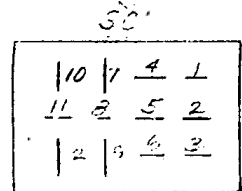 SC
10 7 4 1
11 8 5 2
12 9 6 3